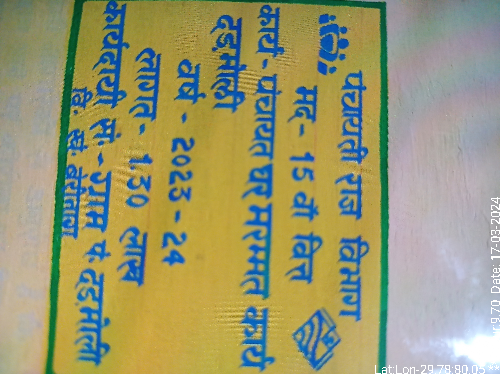 पंचायती राज विभाग
मद - 15 वाँ वित्त
कार्य - पंचायत घर मरम्मत कार्य
दड़मोली
वर्ष - 2023 - 24
लागत - 1.30 लाख
कार्यदायी सं. - ग्राम पं. दड़मोली
वि. ख.
9.70 Date: 17-03-2024
Lat:Lon-29.78:80.05